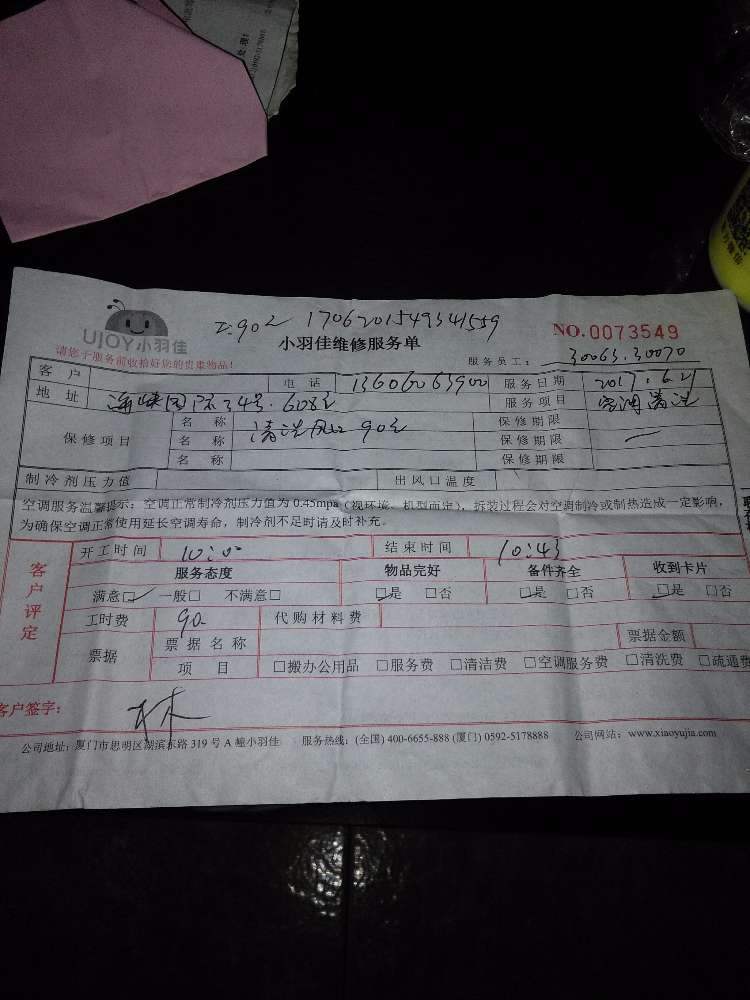 UJOY小羽佳
1706201549341559
NO.0073549
小羽佳维修服务单
请您于服务前收拾好您的贵重物品!
服务员工: 30063.30070
客户 电话 13606063900 服务日期 2017.6.21
地址 海峡国际34号.608室 服务项目 空调清洗
保修项目 名称 清洗风口 90元 保修期限
名称 保修期限
名称 保修期限
制冷剂压力值 出风口温度
空调服务温馨提示: 空调正常制冷剂压力值为0.45mpa (视环境、机型而定), 拆装过程会对空调制冷或制热造成一定影响,
为确保空调正常使用延长空调寿命, 制冷剂不足时请及时补充。
客户评定
开工时间 10:00 结束时间 10:43
服务态度 物品完好 备件齐全 收到卡片
满意□ 一般□ 不满意□ □是 □否 □是 □否 □是 □否
工时费 90 代购材料费
票据 票据名称 票据金额
项目 □搬办公用品 □服务费 □清洁费 □空调服务费 □清洗费 □疏通费
客户签字: 林
公司地址: 厦门市思明区湖滨东路319号A幢小羽佳 服务热线: (全国) 400-6655-888 (厦门) 0592-5178888 公司网站: www.xiaoyujia.com